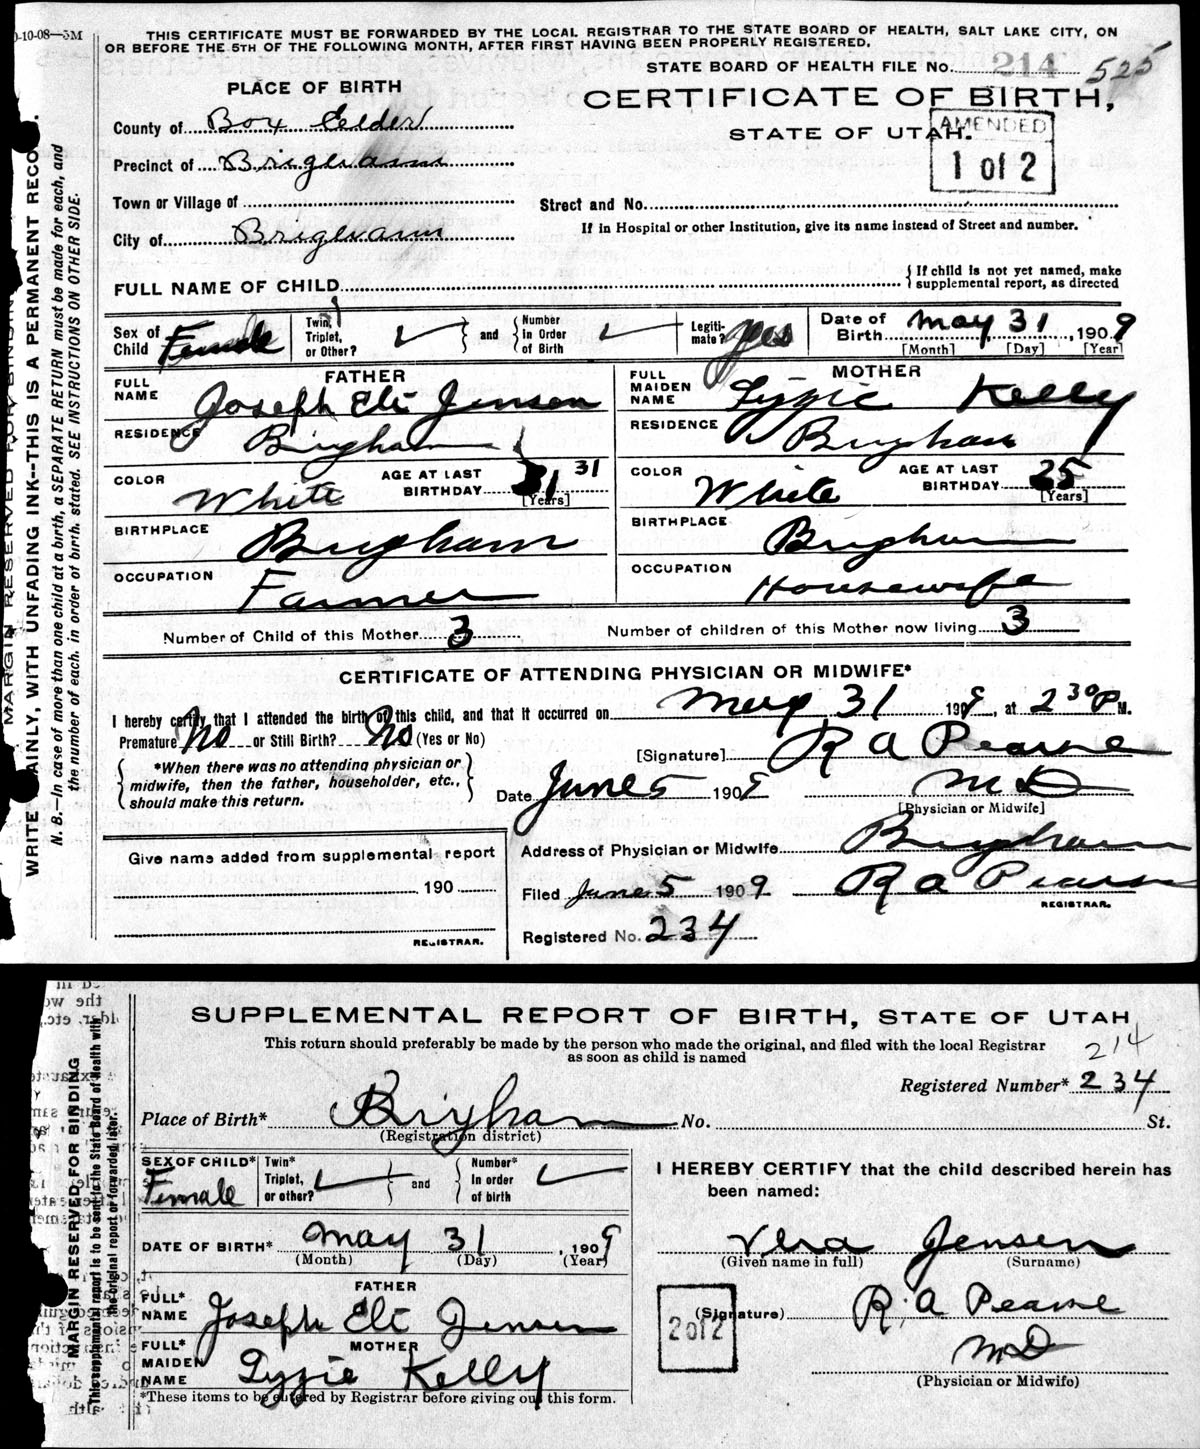 0-10-08—5M
THIS CERTIFICATE MUST BE FORWARDED BY THE LOCAL REGISTRAR TO THE STATE BOARD OF HEALTH, SALT LAKE CITY, ON
OR BEFORE THE 5TH OF THE FOLLOWING MONTH, AFTER FIRST HAVING BEEN PROPERLY REGISTERED.
STATE BOARD OF HEALTH FILE No. 214 525
PLACE OF BIRTH
CERTIFICATE OF BIRTH,
STATE OF UTAH.
AMENDED
1 of 2
County of Box Elder
Precinct of Brigham
Town or Village of
Street and No.
City of Brigham
If in Hospital or other Institution, give its name instead of Street and number.
FULL NAME OF CHILD
{ If child is not yet named, make
supplemental report, as directed
Sex of Child Female
Twin, Triplet, or Other? ✓ } and { Number In Order of Birth ✓
Legiti-mate? yes
Date of Birth May 31, 1909
[Month] [Day] [Year]
FATHER
FULL NAME Joseph Eli Jensen
RESIDENCE Brigham
COLOR White
AGE AT LAST BIRTHDAY 31 31
[Years]
BIRTHPLACE Brigham
OCCUPATION Farmer
MOTHER
FULL MAIDEN NAME Lyzzie Kelly
RESIDENCE Brigham
COLOR White
AGE AT LAST BIRTHDAY 25
[Years]
BIRTHPLACE Brigham
OCCUPATION Housewife
Number of Child of this Mother 3
Number of children of this Mother now living 3
CERTIFICATE OF ATTENDING PHYSICIAN OR MIDWIFE*
I hereby certify that I attended the birth of this child, and that it occurred on May 31 1909, at 2 30 P M.
Premature No or Still Birth? No (Yes or No)
[Signature] R A Pearse
{ *When there was no attending physician or
midwife, then the father, householder, etc.,
should make this return. }
Date June 5 1909 M D
[Physician or Midwife]
Give name added from supplemental report
190
REGISTRAR.
Address of Physician or Midwife Brigham
Filed June 5 1909 R A Pearse
REGISTRAR.
Registered No. 234
MARGIN RESERVED FOR BINDING
WRITE PLAINLY, WITH UNFADING INK--THIS IS A PERMANENT RECORD.
N. B.—In case of more than one child at a birth, a SEPARATE RETURN must be made for each, and
the number of each, in order of birth, stated. SEE INSTRUCTIONS ON OTHER SIDE.
SUPPLEMENTAL REPORT OF BIRTH, STATE OF UTAH
This return should preferably be made by the person who made the original, and filed with the local Registrar
as soon as child is named
214
Registered Number* 234
Place of Birth* Brigham No. St.
(Registration district)
SEX OF CHILD* Female
Twin* Triplet, or other? ✓ } and { Number* In order of birth ✓
DATE OF BIRTH* May 31, 1909
(Month) (Day) (Year)
FATHER
FULL* NAME Joseph Eli Jensen
MOTHER
FULL* MAIDEN NAME Lyzzie Kelly
*These items to be entered by Registrar before giving out this form.
I HEREBY CERTIFY that the child described herein has
been named:
Vera Jensen
(Given name in full) (Surname)
(Signature) R. A Pearse
2 of 2
M D
(Physician or Midwife)
MARGIN RESERVED FOR BINDING
This supplemental report is to be sent to the State Board of Health with
the original report or forwarded later.